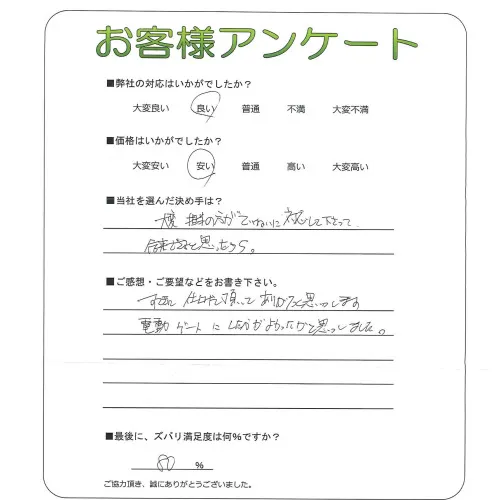 お客様アンケート
■弊社の対応はいかがでしたか？
大変良い 良い 普通 不満 大変不満
■価格はいかがでしたか？
大変安い 安い 普通 高い 大変高い
■当社を選んだ決め手は？
担当の方がていねいに対応して下さって
と思ったから。
■ご感想・ご要望などをお書き下さい。
仕上げて頂って ありがたく思っします
電動ゲートにしたがよかったかと思っしました。
■最後に、ズバリ満足度は何％ですか？
80 %
ご協力頂き、誠にありがとうございました。